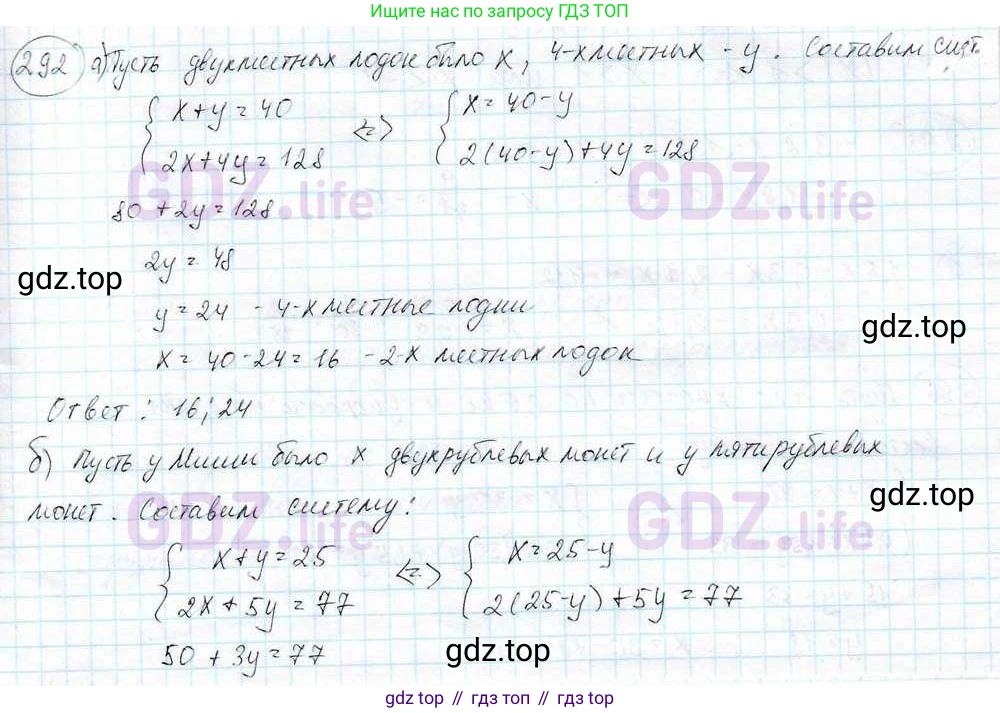 Ищите нас по запросу ГДЗ ТОП
292 а) Пусть двухместных лодок было x, 4-хместных - y. Составим сист.
{ x+y=40 <=> { x=40-y
2x+4y=128 2(40-y)+4y=128
80+2y=128
2y=48
y=24 - 4-хместные лодки
x=40-24=16 - 2-х местных лодок
Ответ: 16; 24
б) Пусть у Миши было x двухрублевых монет и y пятирублевых
монет. Составим систему:
{ x+y=25 <=> { x=25-y
2x+5y=77 2(25-y)+5y=77
50+3y=77
GDZ.life
GDZ.life
GDZ.life
GDZ.life
gdz.top
gdz.top
gdz.top
gdz.top
gdz top // гдз топ // gdz top